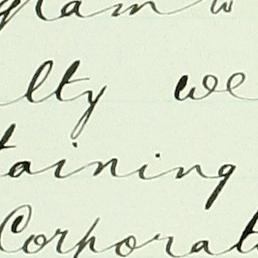 gram w
lty we
taining
Corporat